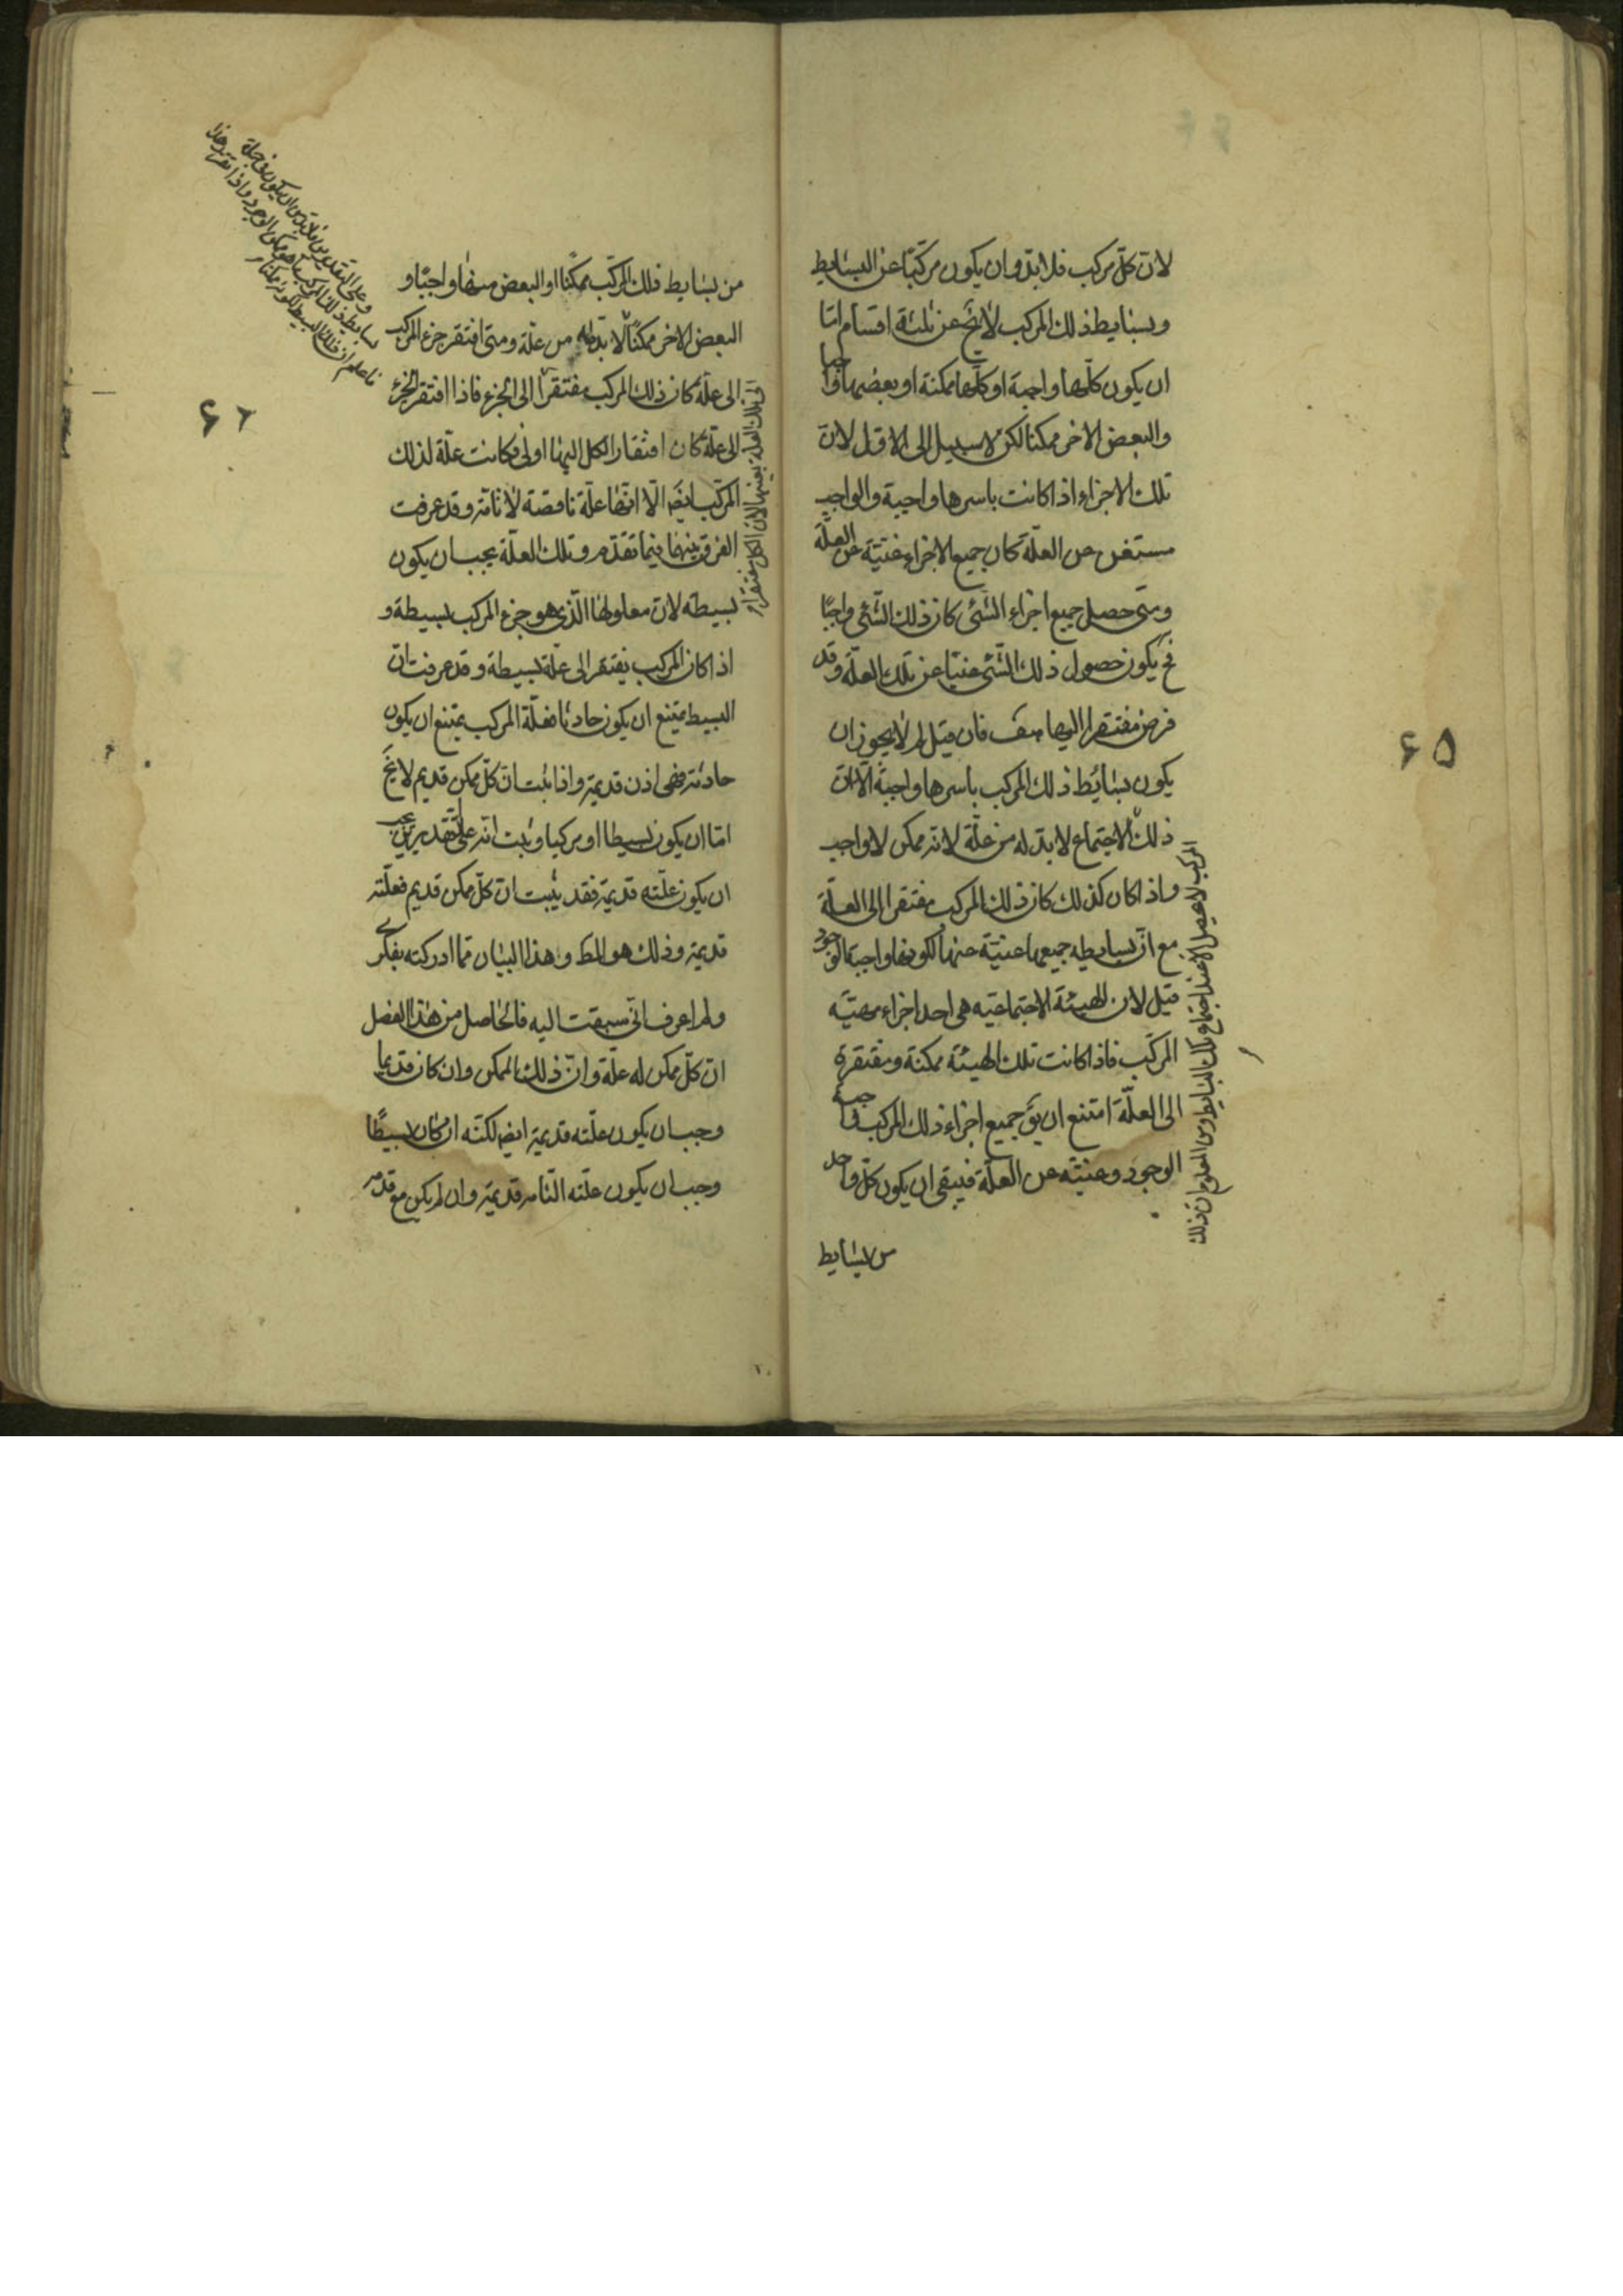 لان كلّ مركب فلابدّ وان يكون مركبًا عن البسايط
وبسايط ذلك المركب لا يخ عن ثلثة اقسام امّا
ان يكون كلّها واجبة او كلّها ممكنة او بعضها واجبا
والبعض الاخر ممكنا لكن لا سبيل الى الاوّل لان
تلك الاجزاء اذا كانت باسرها واجبة والواجب
مستغن عن العلّة كان جميع الاجزاء غنيّة عن العلّة
ومتى حصل جميع اجزاء الشئ كان ذلك الشئ واجبًا
فح يكون حصول ذلك الشئ غنيّا عن تلك العلّة وقد
فرض مفتقرا اليها هف فان قيل لم لا يجوز ان
يكون بسائط ذلك المركب باسرها واجبة الّا انّ
ذلك الاجتماع لا بدّ له من علّة لانه ممكن لا واجب
واذا كان كذلك كان ذلك المركب مفتقرا الى العلّة
مع انّ بسايطه جميعها غنيّة عنها لكونها واجبة الوجود
قيل لان الهيئة الاجتماعيّه هى احد اجزاء مهيّة
المركّب فاذا كانت تلك الهيئة ممكنة ومفتقرة
الى العلّة امتنع ان يق جميع اجزاء ذلك المركب واجبة
الوجود وغنيّة عن العلّة فيبقى ان يكون كلّ واحد
من بسايط
المركب لا يحصل الا عند اجتماع تلك البسايط ومن المعلوم ان ذلك
۶۵
من بسايط ذلك المركّب ممكنًا او البعض منها واجبًا و
البعض الاخر ممكنًا لا بدّ له من علّة ومتى افتقر جزء المركب
الى علّة كان ذلك المركب مفتقرًا الى الجزء فاذا افتقر الجزء
الى علّة كان افتقار الكل اليها اولى فكانت علّة لذلك
المركّب ايضا الّا انّها علّة ناقصة لا تامّة وقد عرفت
الفرق بينهما فيما تقدّم وتلك العلّة يجب ان يكون
بسيطة لان معلولها الّذى هو جزء المركب بسيطة و
اذا كان المركب يفتقر الى علّة بسيطة وقد عرفت انّ
البسيط يمتنع ان يكون حادثا فعلّة المركب يمتنع ان يكون
حادثة فهى اذن قديمة واذا ثبت انّ كلّ ممكن قديم لا يخ
امّا ان يكون بسيطا او مركبا وثبت انّه على التقديرين يجب
ان يكون علّته قديمة فقد يثبت انّ كلّ ممكن قديم فعلّته
قديمة وذلك هو المط وهذا البيان ممّا ادركته بفكرى
ولم اعرف انّى سبقت اليه فالحاصل من هذا الفصل
انّ كلّ ممكن له علّة وانّ ذلك الممكن وان كان قديما
وجب ان يكون علّته قديمة ايضا لكنّه ان كان بسيطًا
وجب ان يكون علّته التّامه قديمة وان لم يكن مع قدمه
الى تلك العلة بعينها لان الكل مفتقرا
وعلى التقديرين فلابد من ان يكون فى جملة
بسايط ذلك المركب ما هو ممكن الوجود واذا تقرر هذا
فاعلم ان ذلك البسيط لكونه ممكنا
۶۶